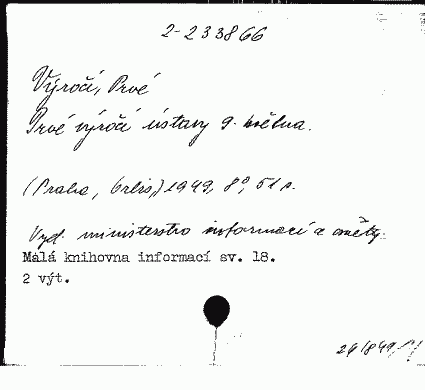 2-233866
Výročí, Prvé
Prvé výročí ústavy 9. května.
(Praha, Orbis,) 1949, 8°, 51 s.
Vyd. ministerstvo informací a osvěty.
Malá knihovna informací sv. 18.
2 výt.